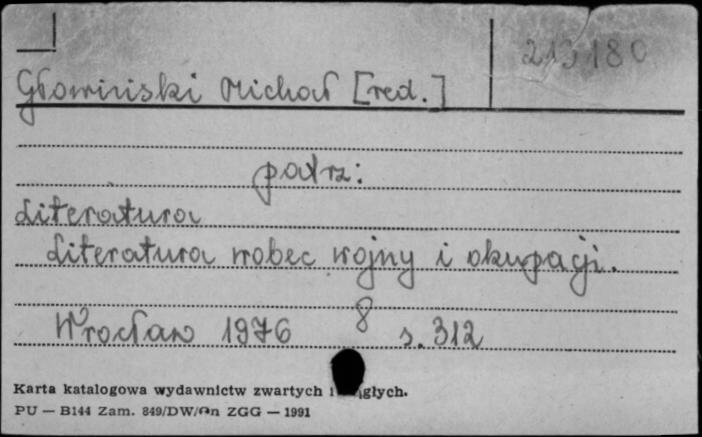 213180
Głowiński Michał [red.]
patrz:
Literatura
Literatura wobec wojny i okupacji.
Wrocław 1976 8 s. 312
Karta katalogowa wydawnictw zwartych i ciągłych.
PU — B144 Zam. 849/DW/Dn ZGG — 1991